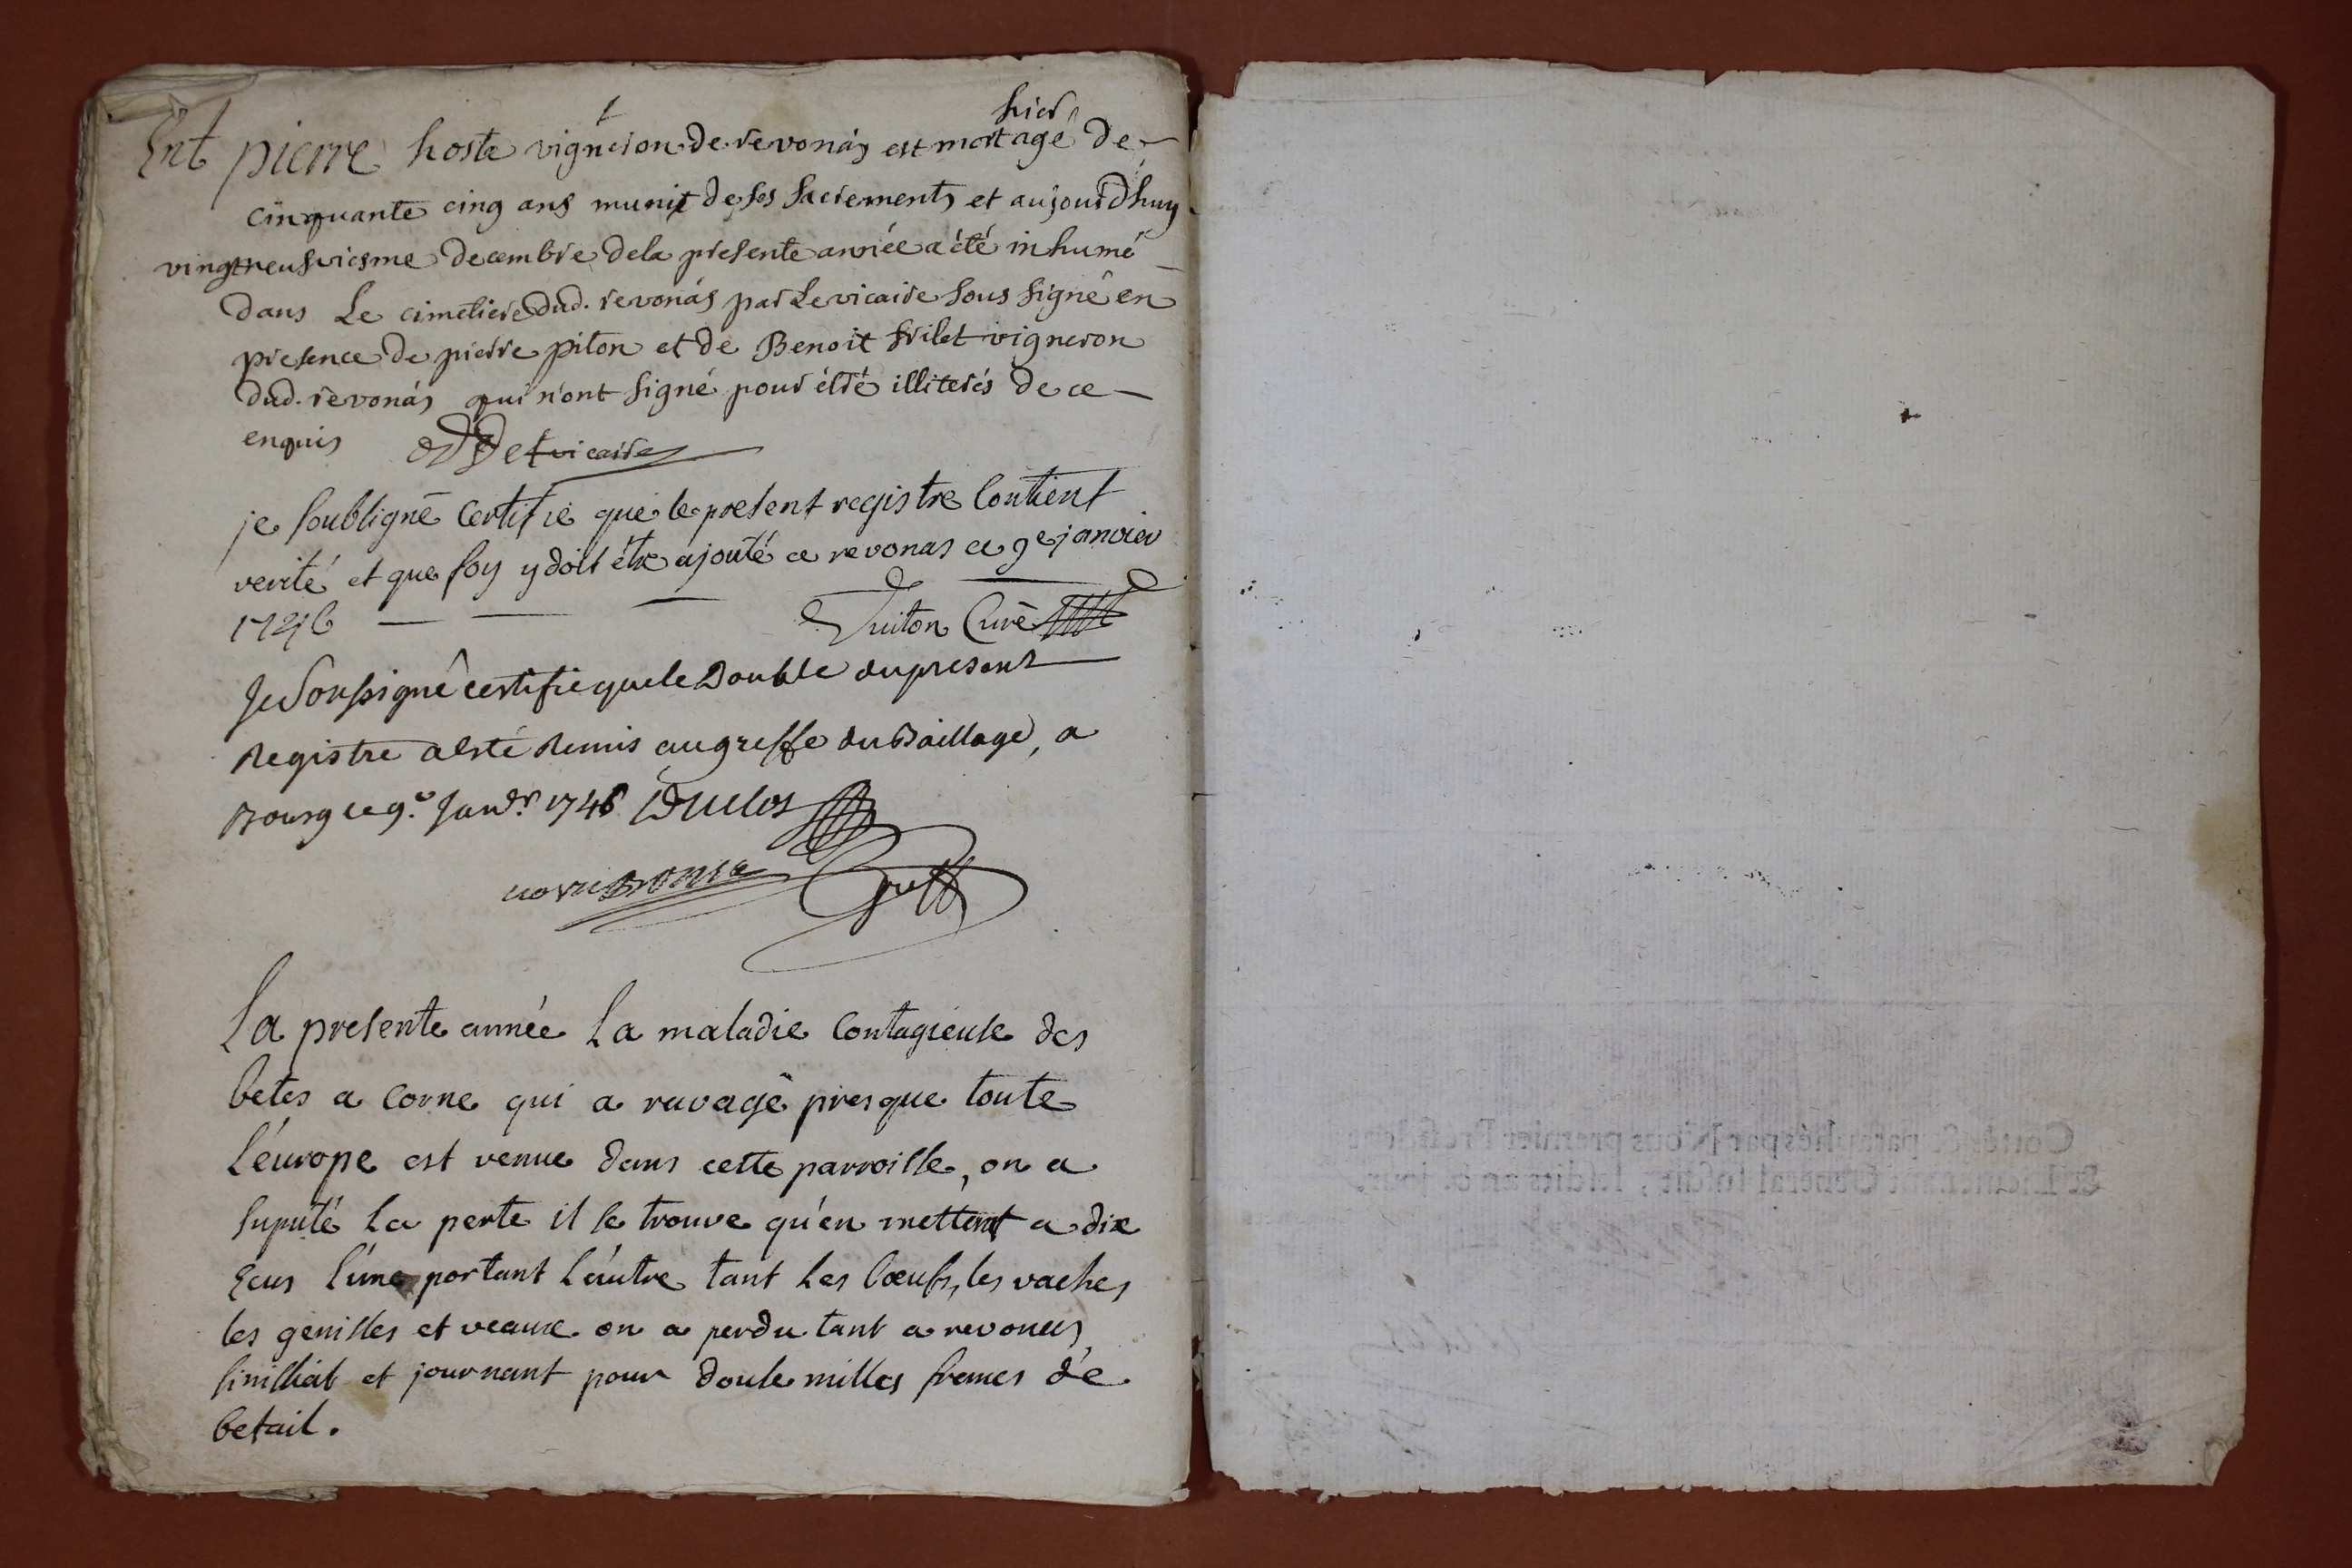 hier
Ent pierre hoste vigneron de revonas est mort agé de
cinquante cinq ans munit de ses sacrements et aujourdhuy
vingtneufviesme decembre dela presente année a été inhumé
dans Le cimetiere dud. revonas par Le vicaire sous signé en
presence de pierre piton et de Benoit frilet vigneron
dud. revonas qui n'ont signé pour étré illiterés de ce
enquis vicaire
je soubsigné certifie que le present registre contient
verité et que foy y doit étre ajouté a revonas ce 9e janvier
1746 Curé
Je Soussigné certifie que le Double du present
Registre a esté Remis au greffe du Baillage, a
Bourg le 9e. Janvr. 1746 Duclos
La presente année La maladie contagieuse des
betes a corne qui a ravagé presque toute
L'europe est venue dans cette parroisse, on a
suputé La perte il se trouve qu'en mettant a dix
Ecus l'une portant L'autre tant Les bœufs, les vaches
les genisses et veaux on a perdu tant a revonas,
simissiat et journant pour douse milles francs de
betail.
Cottés & paraphés par Nous premier President
& Lieutenant General susdit, lesdits an & jour.